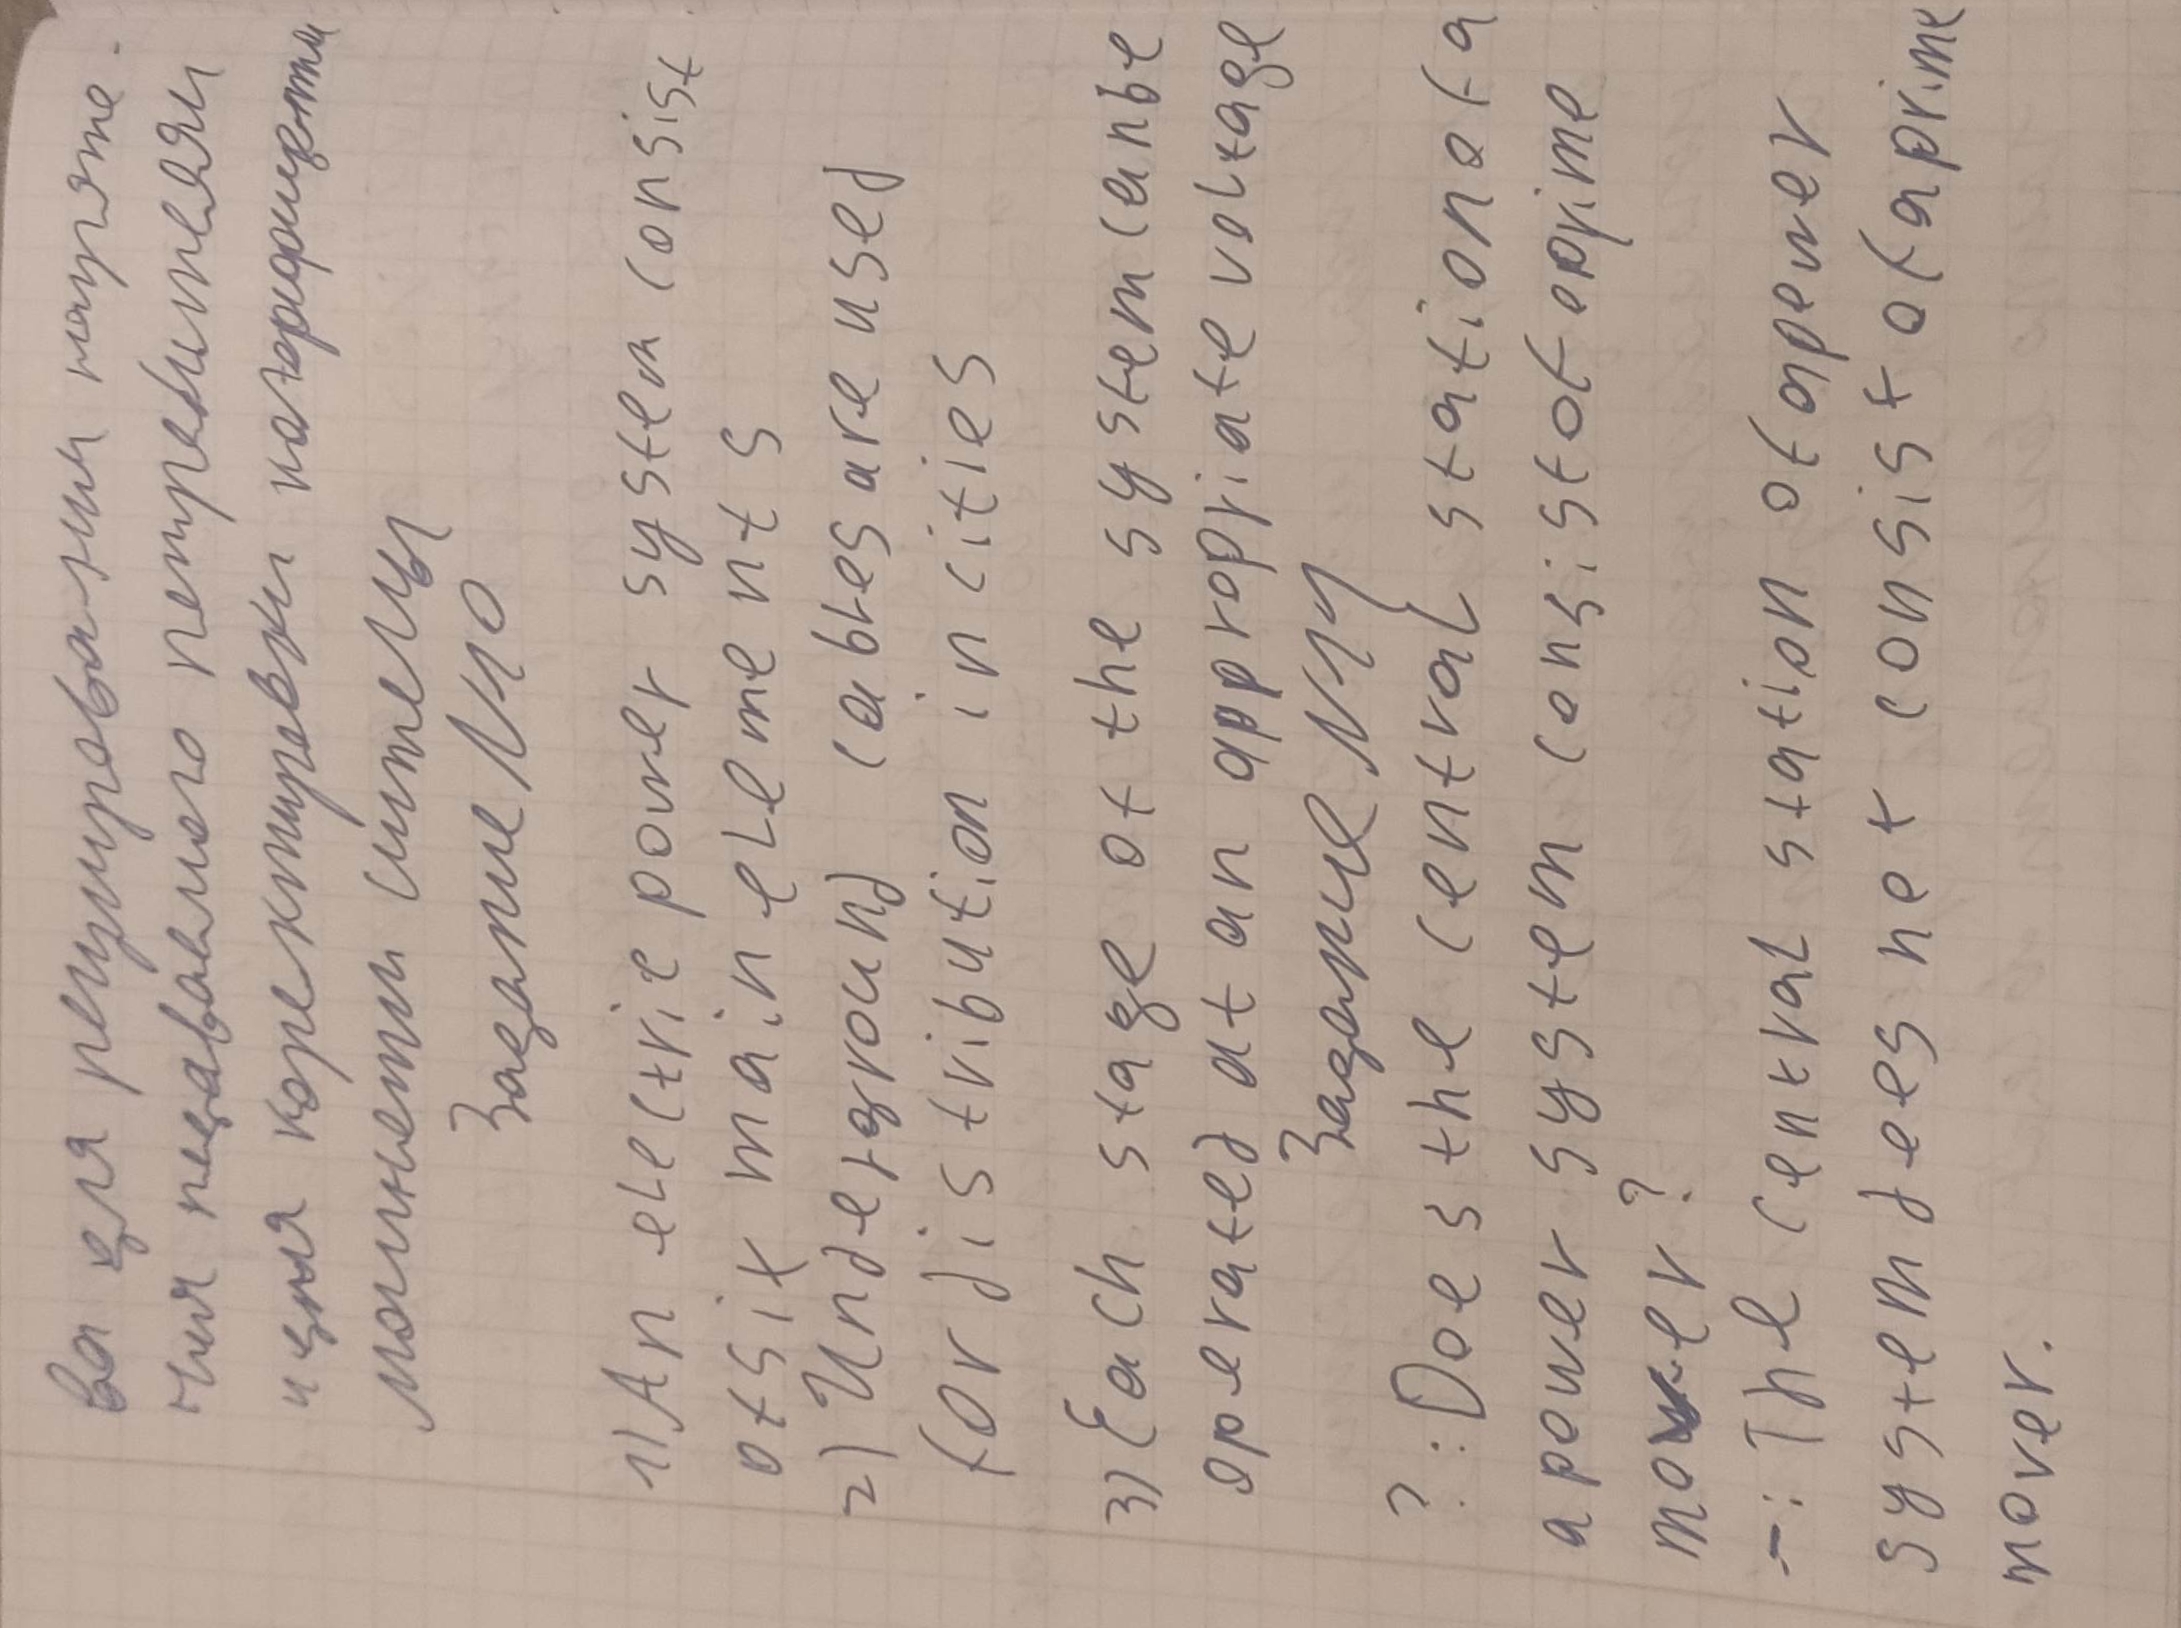 ва для регулирования напряже-
ния подаваемого потребителям
и для коректировки коэффициента
мощности системы
Задание №10
1) An electric power system consist
of six main elements
2) Underground cables are used
for distribution in cities
3) Each stage of the system can be
operated at an appropriate voltage
Задание №11
?: Does the central station of a
a power system consist of a prime
mover?
-: The central station of a power
system does not consist of a prime
mover.